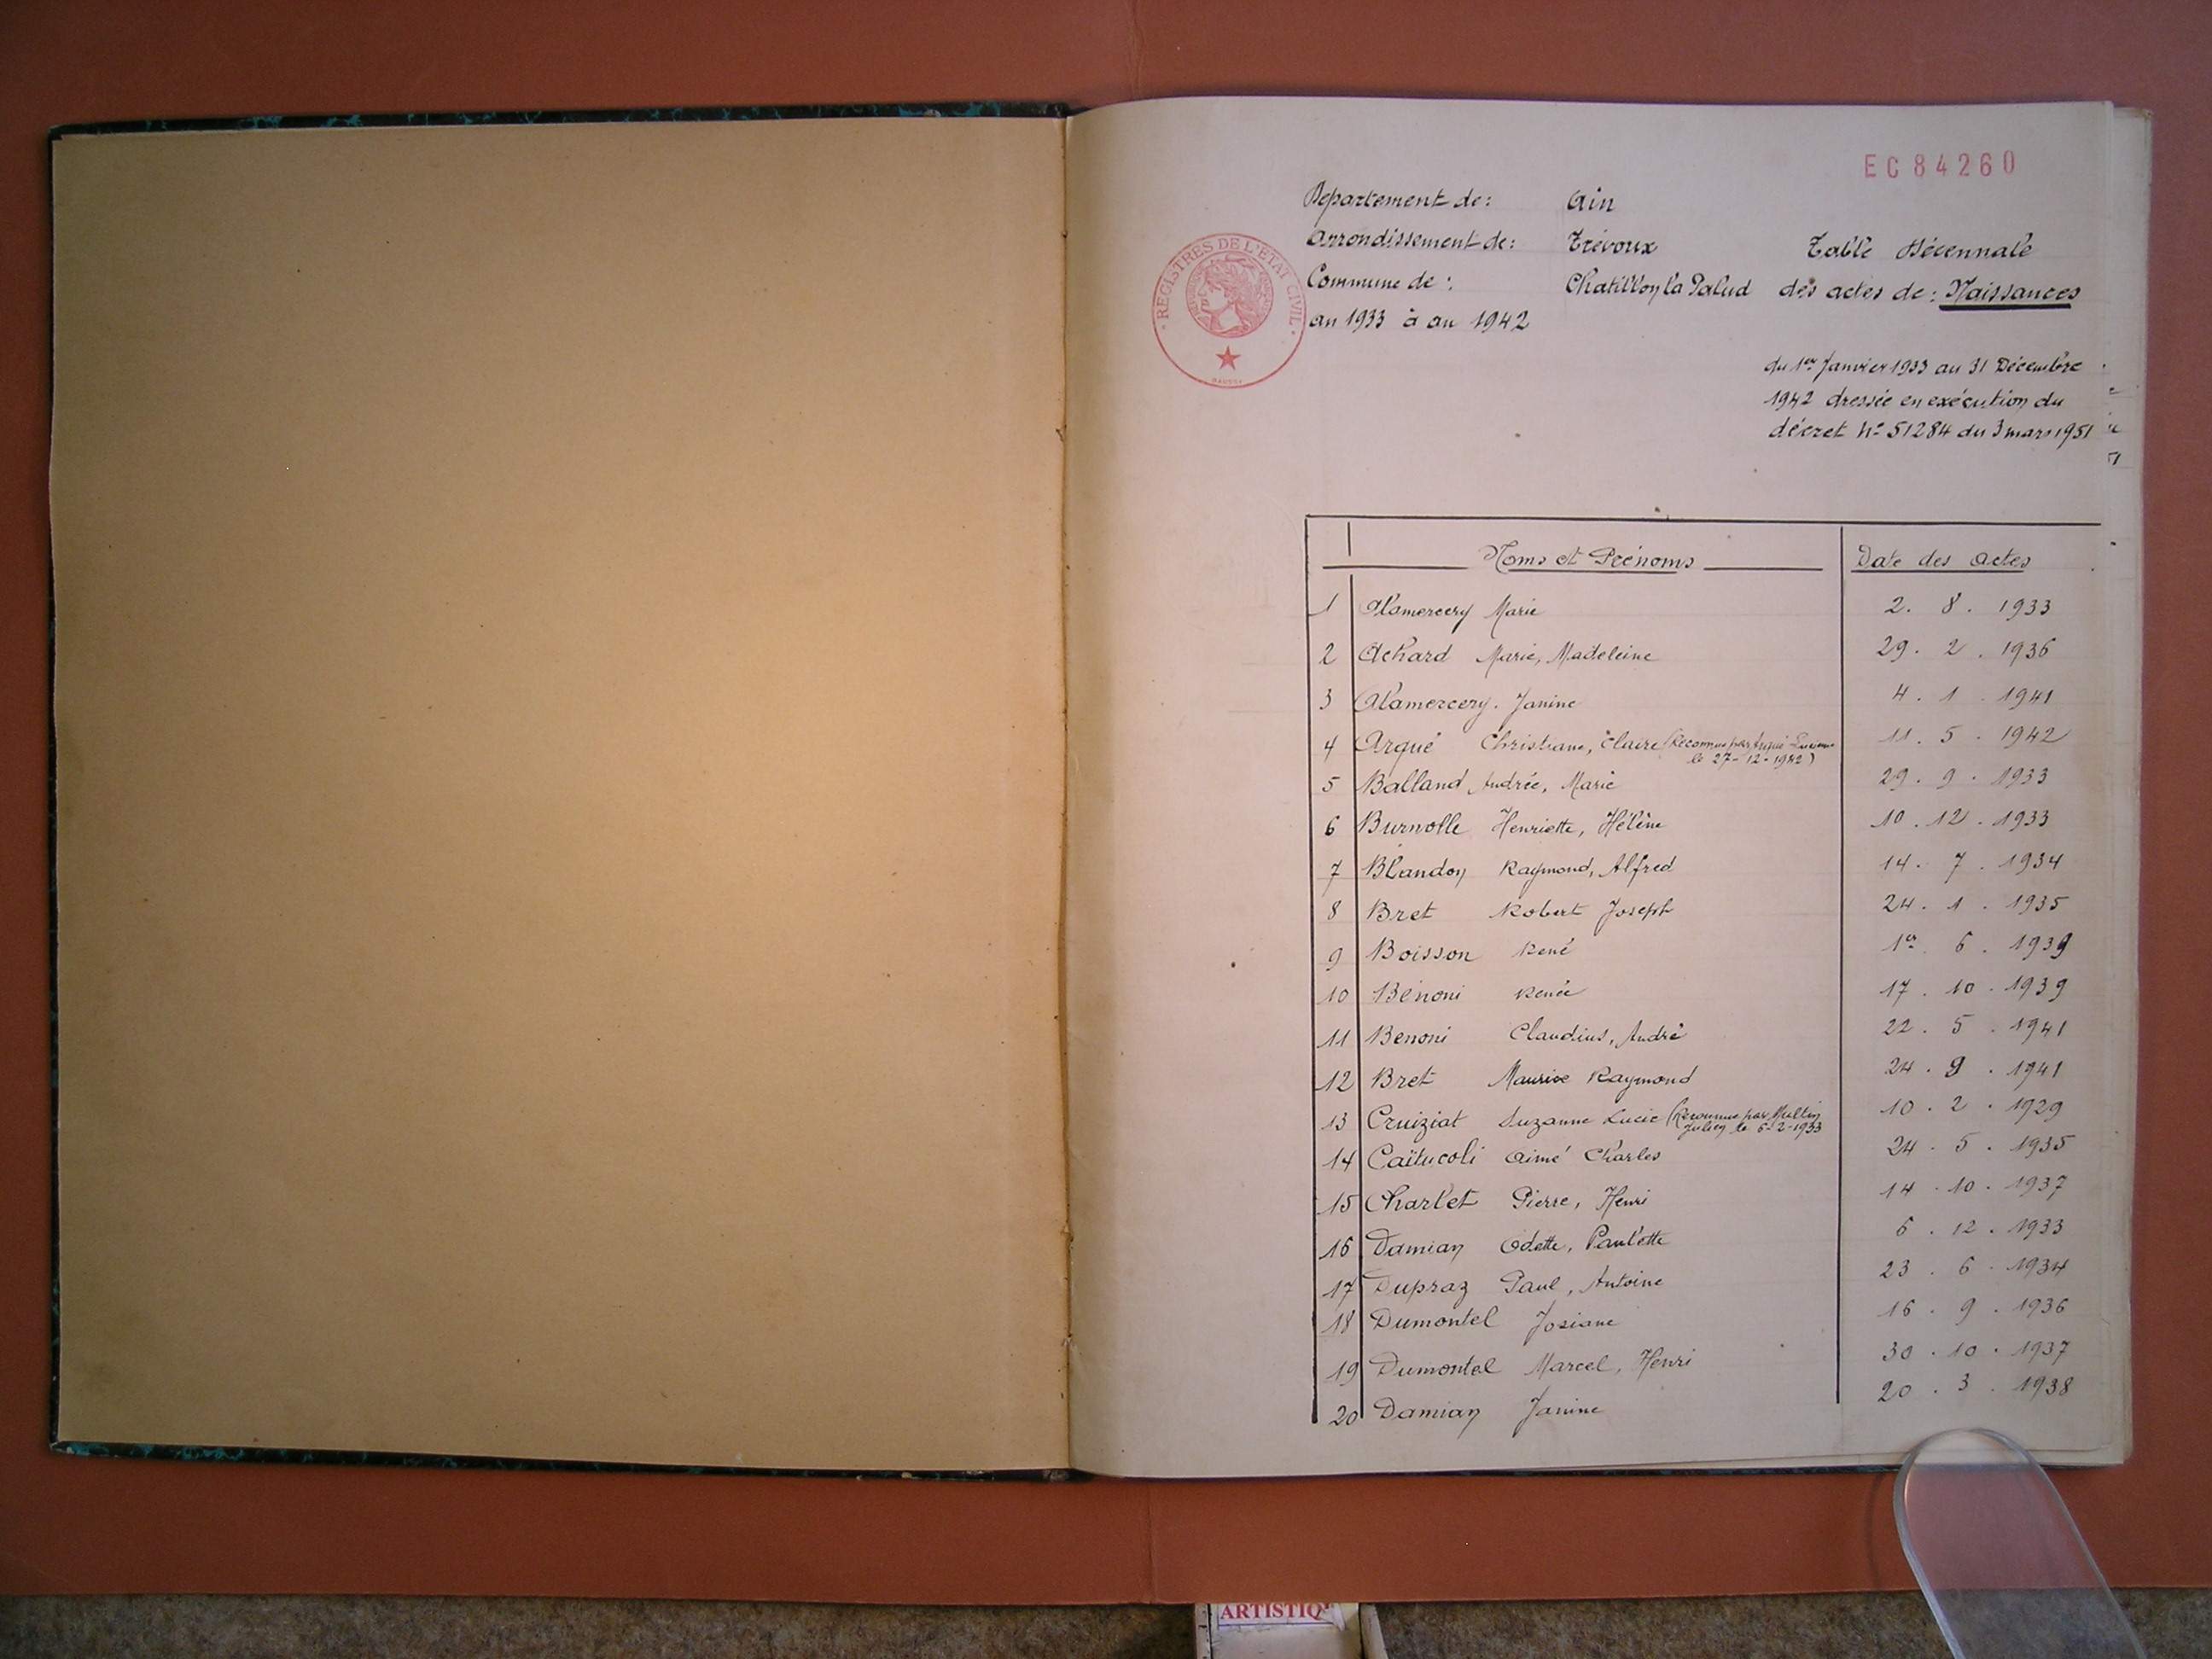 EC84260
Département de: Ain
Arrondissement de: Trévoux
Table Décennale
Commune de: Chatillon la Palud
des actes de: Naissances
an 1933 à an 1942
REGISTRES DE L'ETAT CIVIL
du 1er Janvier 1933 au 31 Décembre
1942 dressée en exécution du
décret N° 51284 du 3 mars 1951
Noms et Prénoms Date des Actes
1 Alamercery Marie 2. 8. 1933
2 Achard Marie, Madeleine 29. 2. 1936
3 Alamercery. Janine 4. 1. 1941
4 Argué Christiane, Claire (Reconnue par Argué 11. 5. 1942
le 27-12-1942)
5 Balland Andrée, Marie 29. 9. 1933
6 Burnolle Henriette, Hélène 10. 12. 1933
7 Blandon Raymond, Alfred 14. 7. 1934
8 Bret Robert Joseph 24. 1. 1935
9 Boisson René 1er. 6. 1939
10 Bénoni Renée 17. 10. 1939
11 Benoni Claudius, André 22. 5. 1941
12 Bret Maurice Raymond 24. 9. 1941
13 Cruiziat Suzanne Lucie (Reconnue par 10. 2. 1929
Julien le 6-2-1933
14 Caïtucoli Aimé Charles 24. 5. 1935
15 Charlet Pierre, Henri 14. 10. 1937
16 Damian Odette, Paulette 6. 12. 1933
17 Dupraz Paul, Antoine 23. 6. 1934
18 Dumontel Josiane 16. 9. 1936
19 Dumontel Marcel, Henri 30. 10. 1937
20 Damian Janine 20. 3. 1938
ARTISTIQ